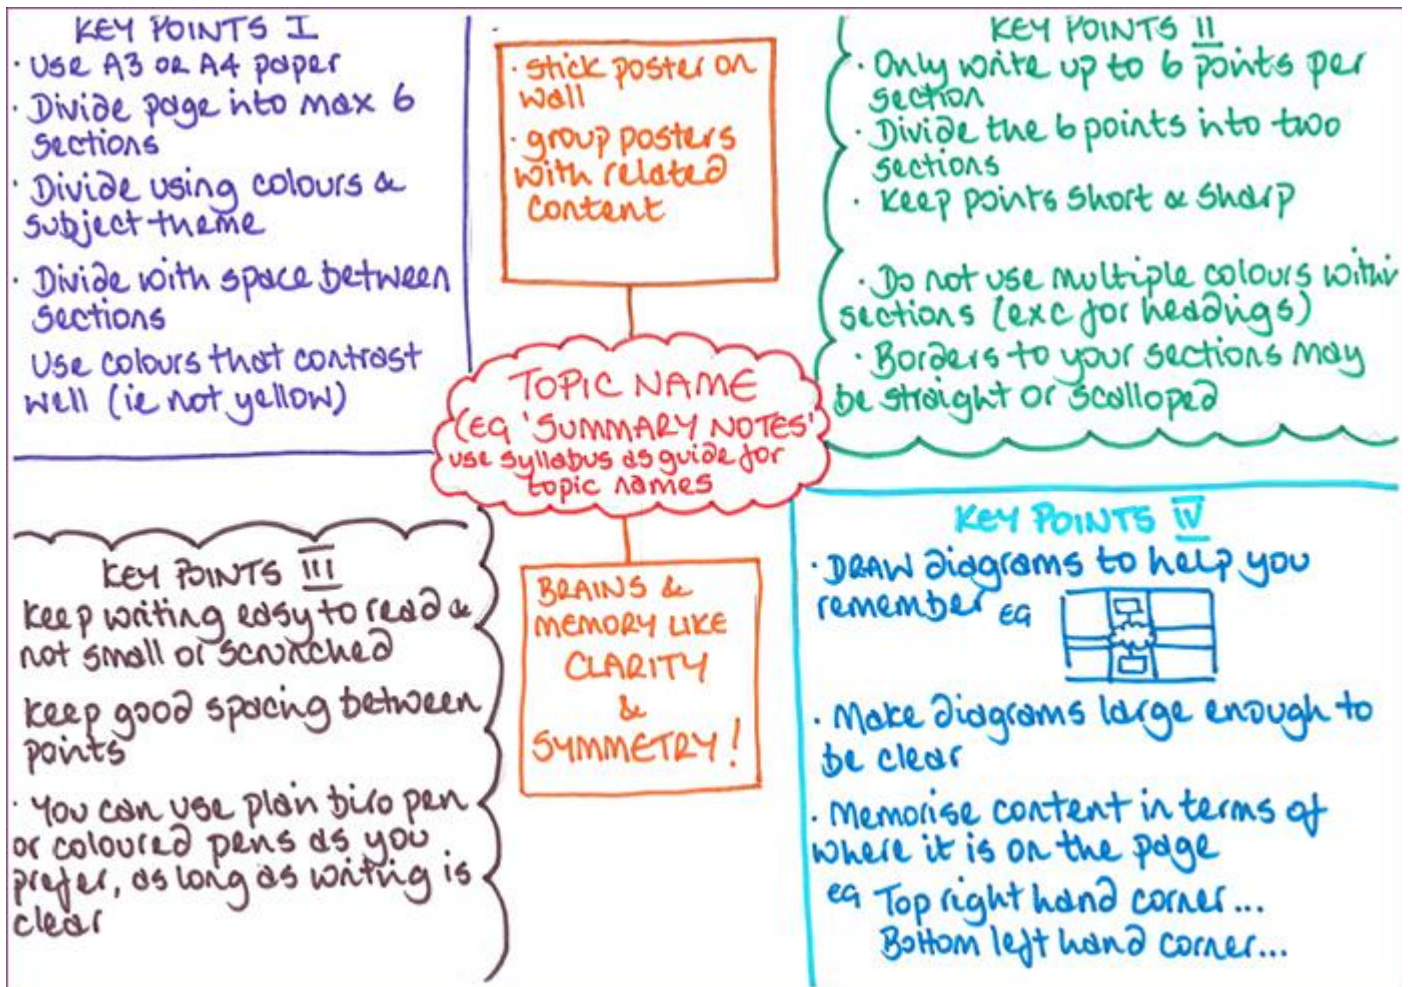 KEY POINTS I
· Use A3 or A4 paper
· Divide page into max 6
sections
· Divide using colours &
subject theme
· Divide with space between
sections
Use colours that contrast
well (ie not yellow)
· stick poster on
wall
· group posters
with related
content
KEY POINTS II
· Only write up to 6 points per
section
· Divide the 6 points into two
sections
· Keep points short & sharp
· Do not use multiple colours within
sections (exc for headings)
· Borders to your sections may
be straight or scalloped
TOPIC NAME
(EG 'SUMMARY NOTES'
use syllabus as guide for
topic names
KEY POINTS III
Keep writing easy to read &
not small or scrunched
Keep good spacing between
points
· You can use plain biro pen
or coloured pens as you
prefer, as long as writing is
clear
BRAINS &
MEMORY LIKE
CLARITY
&
SYMMETRY!
KEY POINTS IV
· DRAW diagrams to help you
remember EG
· Make diagrams large enough to
be clear
· Memorise content in terms of
where it is on the page
eg Top right hand corner...
Bottom left hand corner...